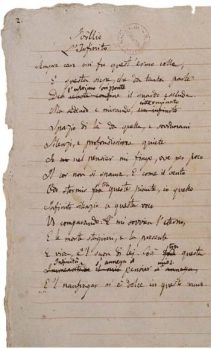 2.
Idillio
L'Infinito
Sempre caro mi fu quest'ermo colle,
E questa siepe, che da tanta parte
De l'ultimo orizzonte
Del celeste confine il guardo esclude.
interminato
Ma sedendo e mirando, un infinito
Spazio di là da quella, e sovrumani
Silenzi, e profondissima quiete
Io nel pensier mi fingo, ove per poco
Il cor non si spaura. E come il vento
Odo stormir fra queste piante, io quello
Infinito silenzio a questa voce
Vo comparando: E mi sovvien l'eterno,
E le morte stagioni, e la presente
E viva, e 'l suon di lei. Così fra questa
pensier
E 'l naufragar m'è dolce in questo mare.